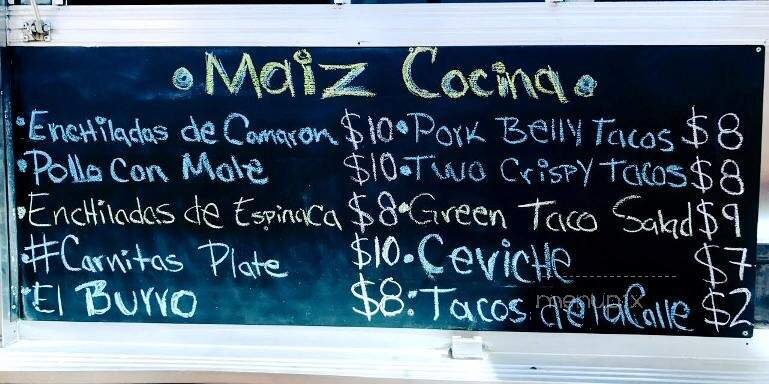 Maiz Cocina
•Enchiladas de Camaron $10
•Pollo Con Mole $10
•Enchiladas de Espinaca $8
•#Carnitas Plate $10
•El Burro $8
•Pork Belly Tacos $8
•Two Crispy Tacos $8
•Green Taco Salad $9
•Ceviche $7
•Tacos de la Calle $2
menupix